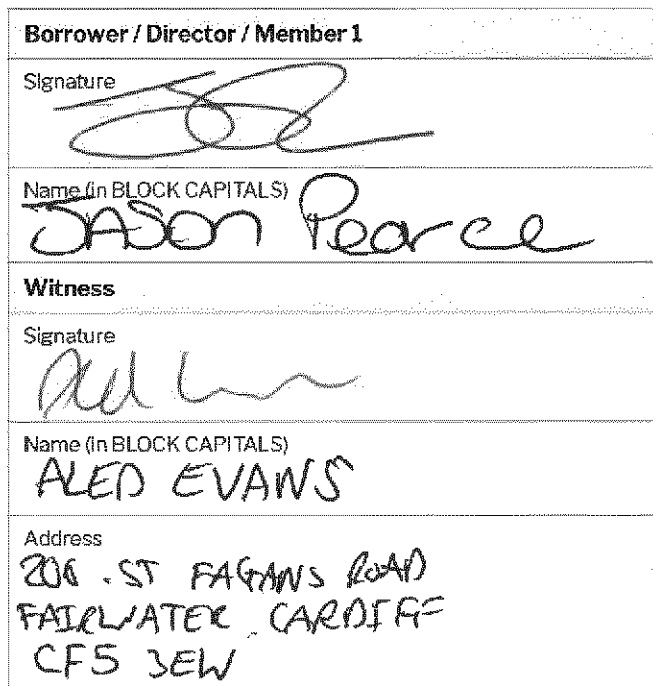 Borrower / Director / Member 1
Signature
Name (in BLOCK CAPITALS)
JASON Pearce
Witness
Signature
Name (in BLOCK CAPITALS)
ALED EVANS
Address
206 . ST FAGANS ROAD
FAIRWATER CARDIFF
CF5 3EW